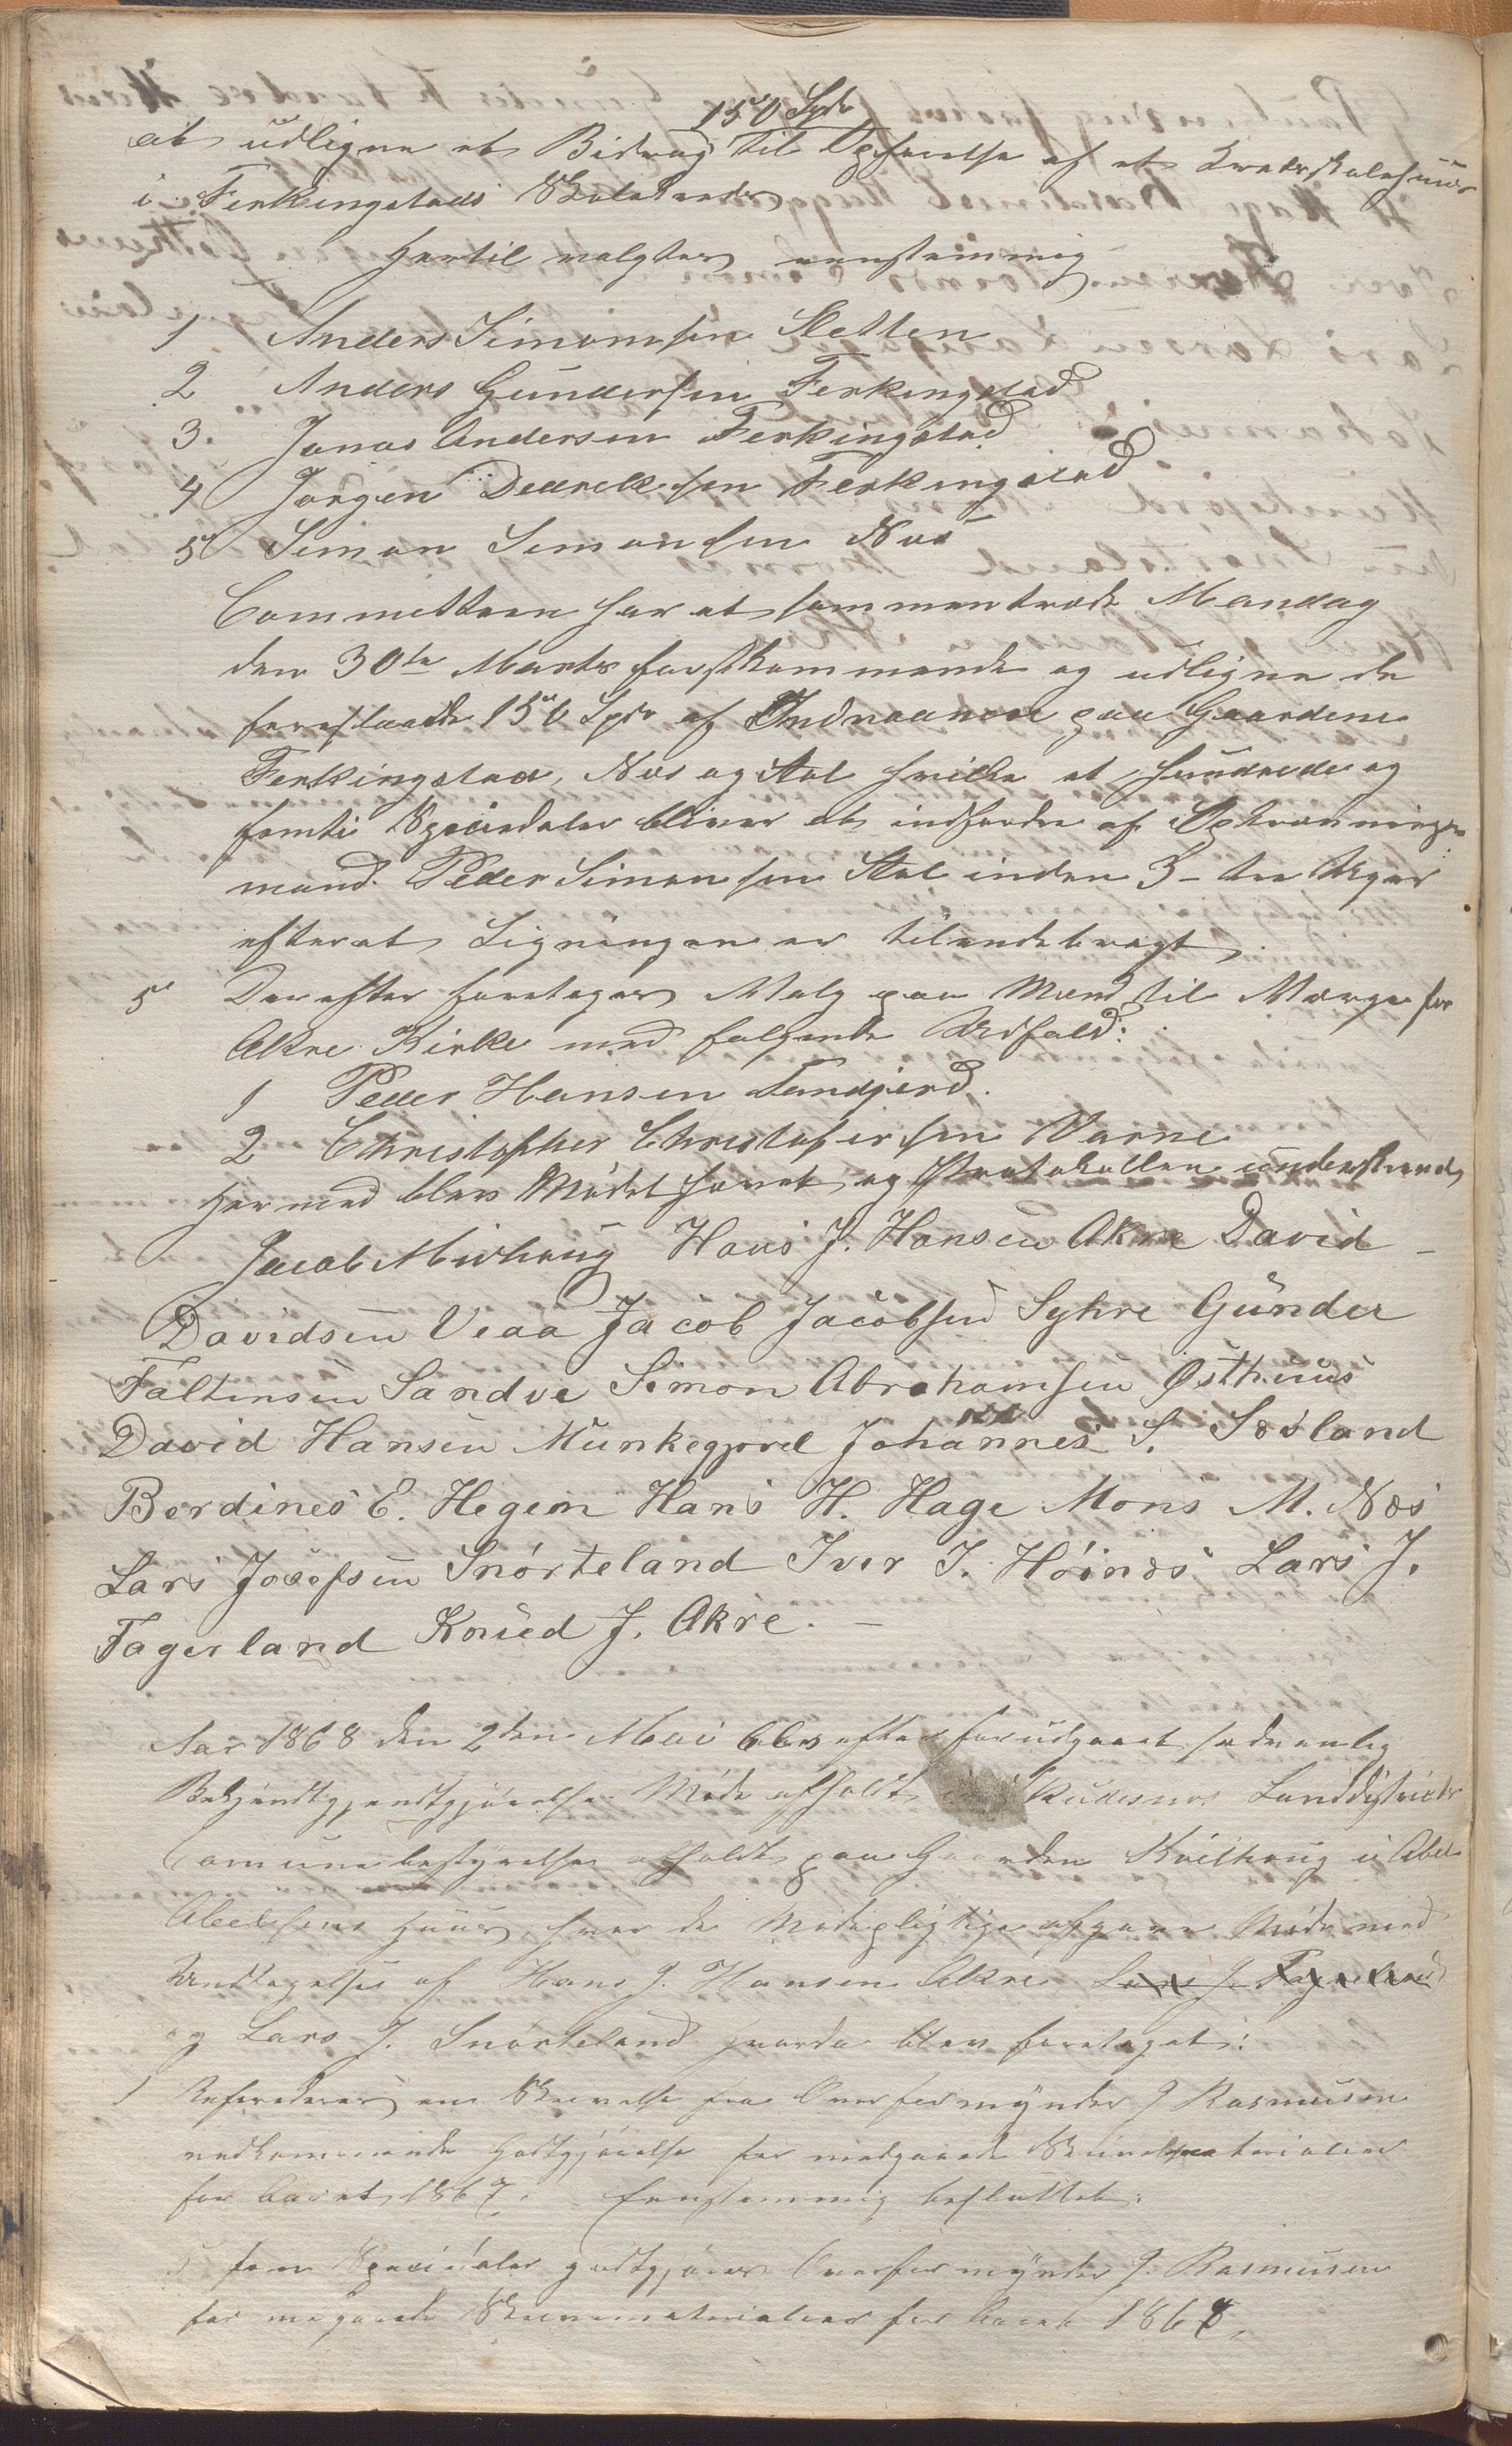 150 Spd
at udligne et Bidrag til Opførelse af et Kredsskolehuus
i Ferkingstads Skolekreds
Hertil valgtes eenstemmig
1 Anders Simonsen Stetten
2 Anders Gundersen Ferkingstad
3. Jonas Andersen Ferkingstad
4 Jørgen Ferkingstad
5 Simon Simonsen Næs
Committeen har at sammentræde Mandag
den 30te Marts førstkommende og udligne de
forestaaende 150 Spd af Indvaanere paa Gaardene
Ferkingstad, Næs og Stol hvilke et hundrede og
femti Speciedaler bliver at indfordre af Opkrævnings
mand Peder Simonsen Stol inden 3 - tre Uger
efterat Ligningen er tilendebragt.
5 Derefter foretoges Valg paa Mænd til Værge for
Akre Kirke med følgende Udfald:
1 Peder Hansen Tandjerd.
2 Christopher Christofersen Varne
Hermed blev Mødet hævet og Protokollen underskrevet
Jacob Midhaug Hans J. Hansen Akre David -
Davidsen Veaa Jacob Jacobsen Syhre Gunder
Faltinsen Sandve Simon Abrahamsen Østhuus
David Hansen Munkegjord Johannes S. Sæsland
Berdines E. Hegem Hans H. Hage Mons M. Næs
Lars Josefsen Snórteland Iver I. Hóinæs Lars J.
Fagerland Knud J. Akre. -
Aar 1868 den 2den Mai blev efter forudgaaet sædvanlig
Møde afholdt Skudesnæs Landdistricts
Comunebestyrelse afholdt paa Gaarden Kvilhaug i Abel
Abelsens Huus, hvor de Mødepligtige afgave Møde med
Undtagelse af Hans J. Hansen Akre Lars J. Fagerland
og Lars J. Snorteland hvorda blev foretaget:
1 Refereredes en Skrivelse fra Overformynder J Rasmusen
vedkommende Godtgjørelse for medgaaede Skrivematerialier
for Aaret 1867. Eenstemmig besluttet:
5 fem Speciedaler godtgjøres Overformynder J. Rasmusen
for medgaaede Skrivematerialier for Aaret 1867.